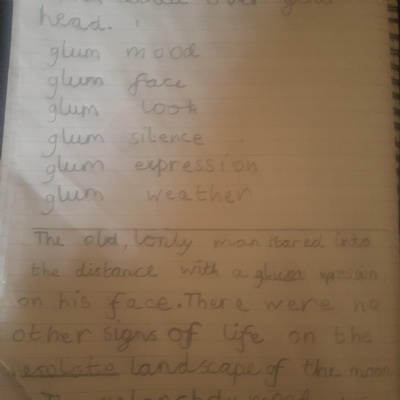 over your
head.
glum mood
glum face
glum look
glum silence
glum expression
glum weather
The old, lonly man stared into
the distance with a glum
on his face. There were no
other signs of life on the
desolate landscape of the moon
The melancholy mood